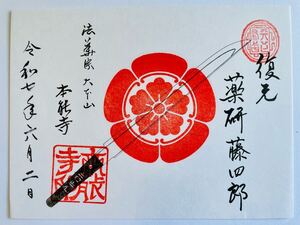 復元
薬研藤四郎
法華宗大本山
本能寺
令和七年六月二日
本能寺印